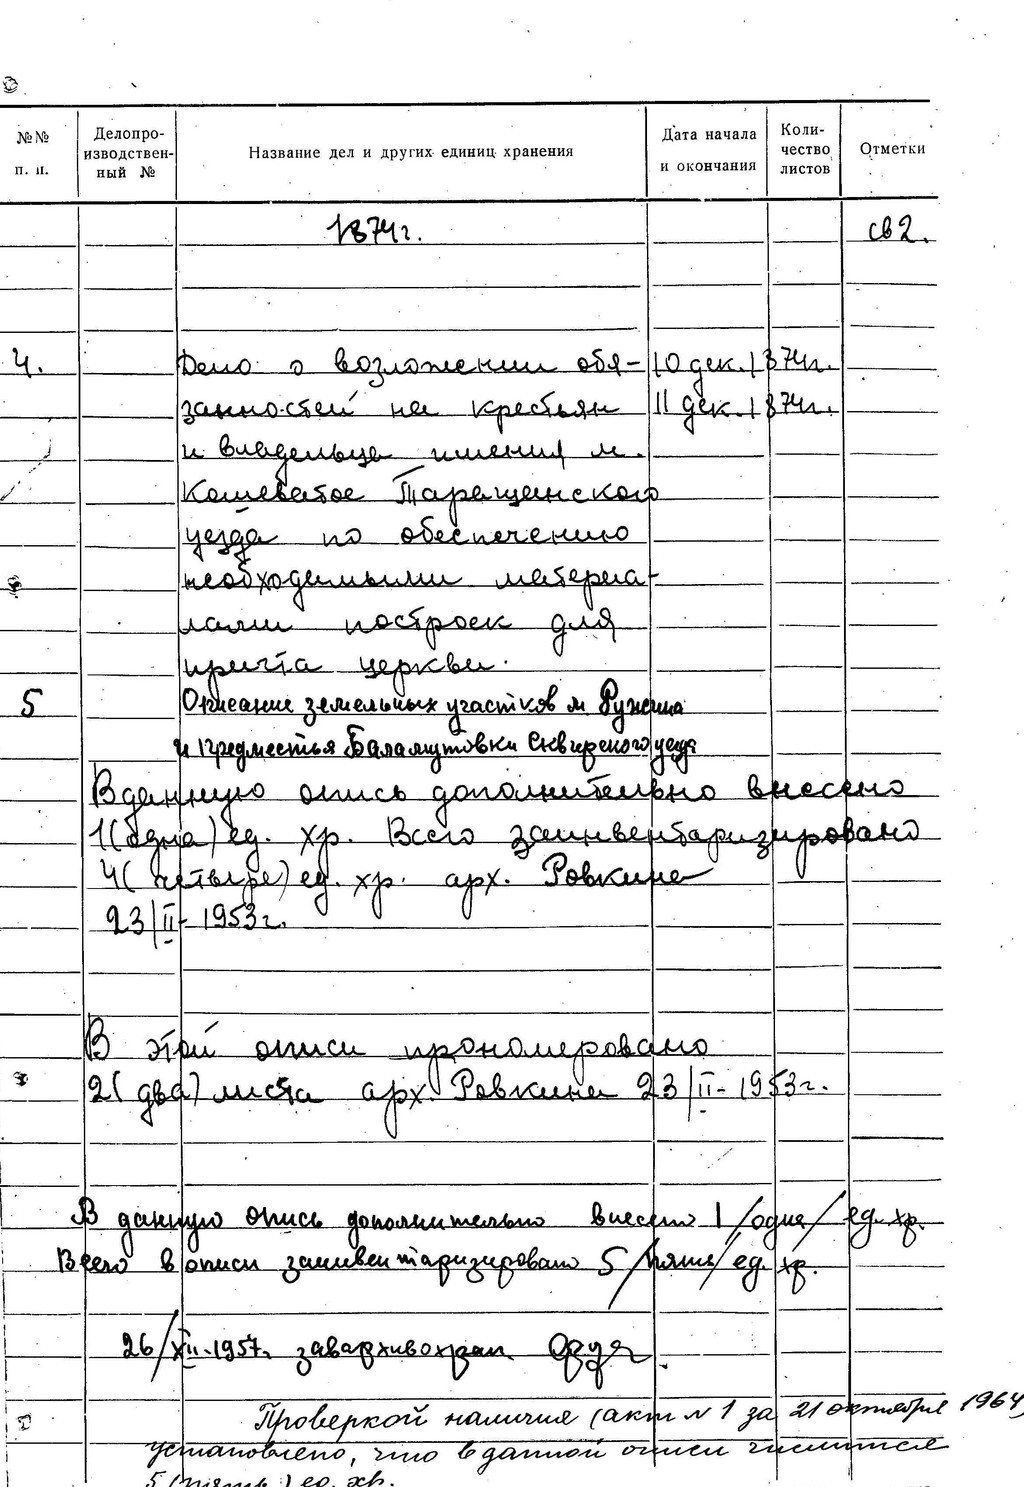 №№ п. п. | Делопро-изводствен-ный № | Название дел и других единиц хранения | Дата начала и окончания | Коли-чество листов | Отметки
1874г. св 2.
4. Дело о возложении обя- 10 дек. 1874г.
занностей на крестьян 11 дек. 1874г.
и владельца имения м.
Кошеватое Таращанского
уезда по обеспечению
необходимыми материа-
лами построек для
причта церкви.
5 Описание земельных участков м. Ружина
и предместья Баламутовки Сквирского уезда
В данную опись дополнительно внесено
1(одна) ед. хр. Всего заинвентаризировано
4(четыре) ед. хр. арх. Ровкина
23/II-1953г.
В этой описи прономеровано
2(два) листа арх. Ровкина 23/II-1953г.
В данную опись дополнительно внесено 1/одна/ ед. хр.
Всего в описи заинвентаризировано 5/пять/ ед. хр.
26/XII-1957г. завархивохран.
Проверкой наличия (акт № 1 за 21 октября 1964)
установлено, что в данной описи числится
5 (пять) ед. хр.